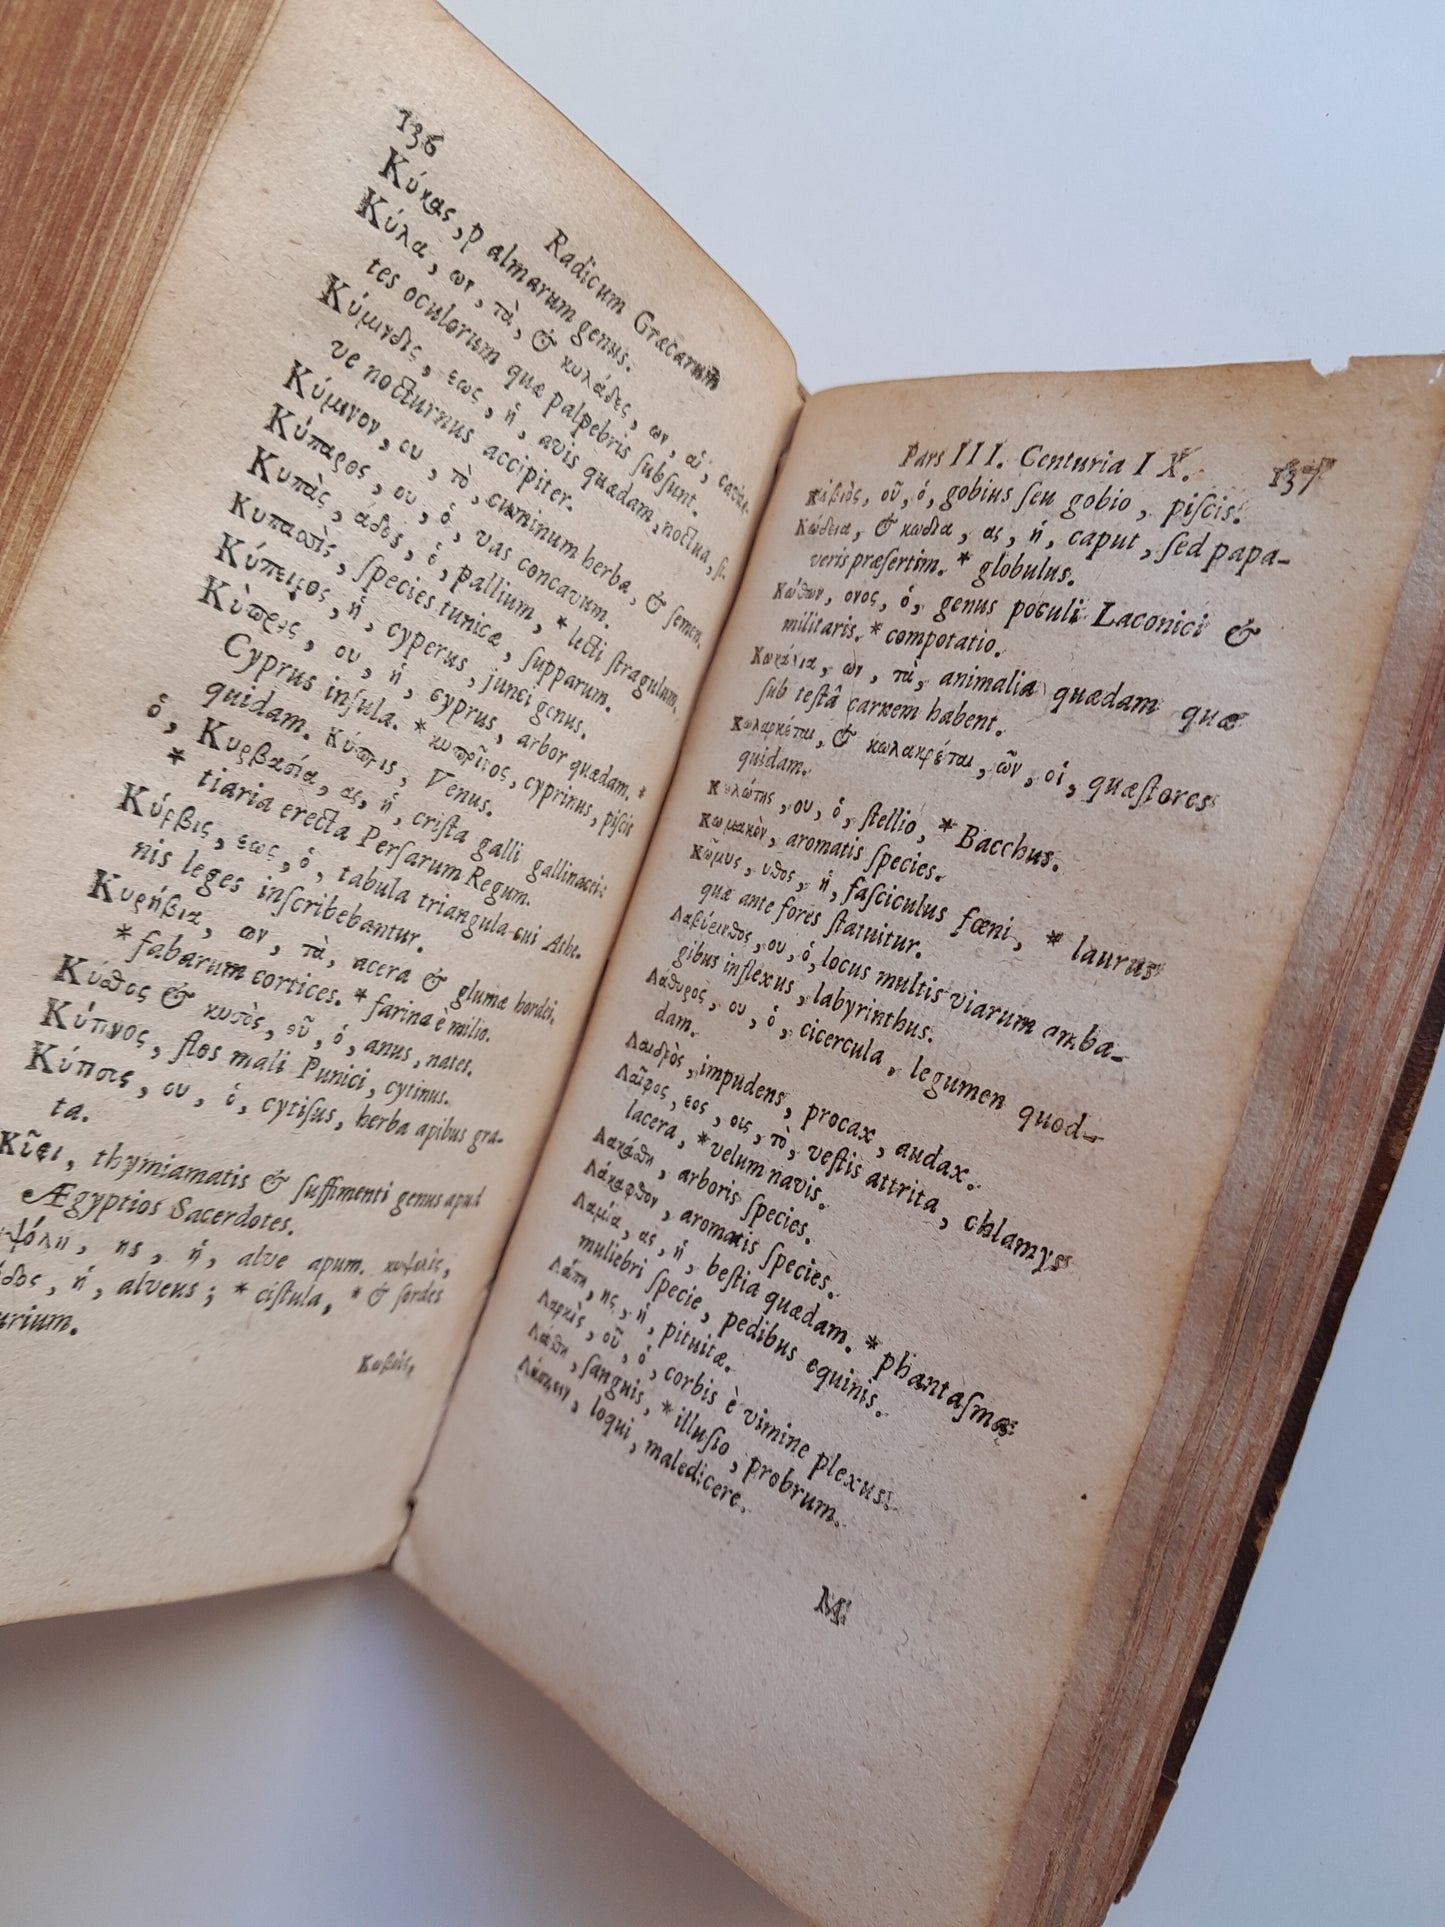 136 Radicum Græcarum
Κύκας, palmarum genus.
Κύλα, ων, τὰ, & κυλάδες, ων, αἱ, cavita-
tes oculorum quæ palpebris ſubſunt.
Κύμινδις, εως, ἡ, avis quædam, noctua, ſi-
ve nocturnus accipiter.
Κύμινον, ου, τὸ, cuminum herba, & ſemen.
Κύπαρος, ου, ὁ, vas concavum.
Κυπὰς, άδος, ὁ, pallium, * lecti ſtragulum,
Κυπασσὶς, ſpecies tunicæ, ſupparum.
Κύπειρος, ἡ, cyperus, junci genus.
Κύπρος, ου, ἡ, cyprus, arbor quædam. *
Cyprus inſula. * κυπρῖνος, cyprinus, piſcis
quidam. Κύπρις, Venus.
ὁ, Κυρβασία, ας, ἡ, criſta galli gallinacei:
* tiaria erecta Perſarum Regum.
Κύρβις, εως, ὁ, tabula triangula cui Athe-
nis leges inſcribebantur.
Κυρήβια, ων, τὰ, acera & glumæ hordei,
* fabarum cortices. * farina è milio.
Κύσθος & κυσὸς, οῦ, ὁ, anus, nates.
Κύτινος, flos mali Punici, cytinus.
Κύτισις, ου, ὁ, cytiſus, herba apibus gra-
ta.
Κῦφι, thymiamatis & ſuffimenti genus apud
Ægyptios Sacerdotes.
ψέλη, ης, ἡ, alve apum. κυψελὶς,
ίδος, ἡ, alveus; * ciſtula, * & ſordes
urium.
Κωβιὸς,
Pars III. Centuria IX. 137
Κωβιὸς, οῦ, ὁ, gobius ſeu gobio, piſcis.
Κώδεια, & κωδία, ας, ἡ, caput, ſed papa-
veris præſertim. * globulus.
Κώθων, ωνος, ὁ, genus poculi Laconici &
militaris. * compotatio.
Κωκάλια, ων, τὰ, animalia quædam quæ
ſub teſtâ carnem habent.
Κωλαρκέται, & κωλακρέται, ῶν, οἱ, quæſtores
quidam.
Κωλώτης, ου, ὁ, ſtellio, * Bacchus.
Κωμακὸν, aromatis ſpecies.
Κῶμυς, υθος, ἡ, faſciculus fœni, * laurus
quæ ante fores ſtatuitur.
Λαβύρινθος, ου, ὁ, locus multis viarum amba-
gibus inflexus, labyrinthus.
Λάθυρος, ου, ὁ, cicercula, legumen quod-
dam.
Λαιδρὸς, impudens, procax, audax.
Λαῖφος, εος, ους, τὸ, veſtis attrita, chlamys
lacera, * velum navis.
Λακάθη, arboris ſpecies.
Λάκαφθον, aromatis ſpecies.
Λαμία, ας, ἡ, beſtia quædam. * phantaſma
muliebri ſpecie, pedibus equinis.
Λάπη, ης, ἡ, pituitæ.
Λαρκὸς, οῦ, ὁ, corbis è vimine plexus.
Λάσθη, ſanguis, * illuſio, probrum.
Λάσκειν, loqui, maledicere.
M